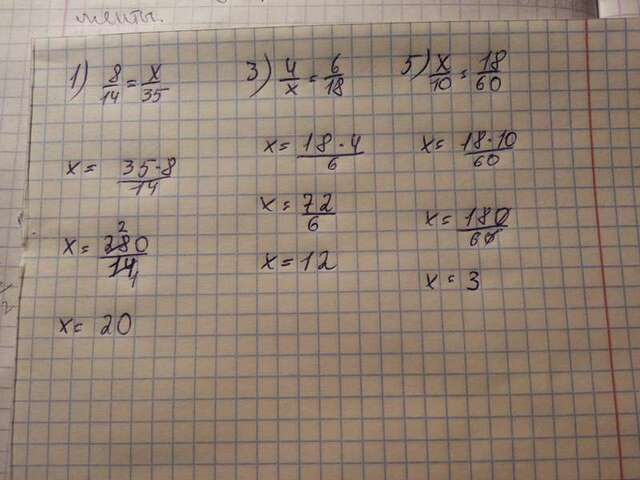 менты.
1) 8/14 = x/35
x = 35·8/14
x = 280/14
x = 20
3) 4/x = 6/18
x = 18·4/6
x = 72/6
x = 12
5) x/10 = 18/60
x = 18·10/60
x = 180/60
x = 3